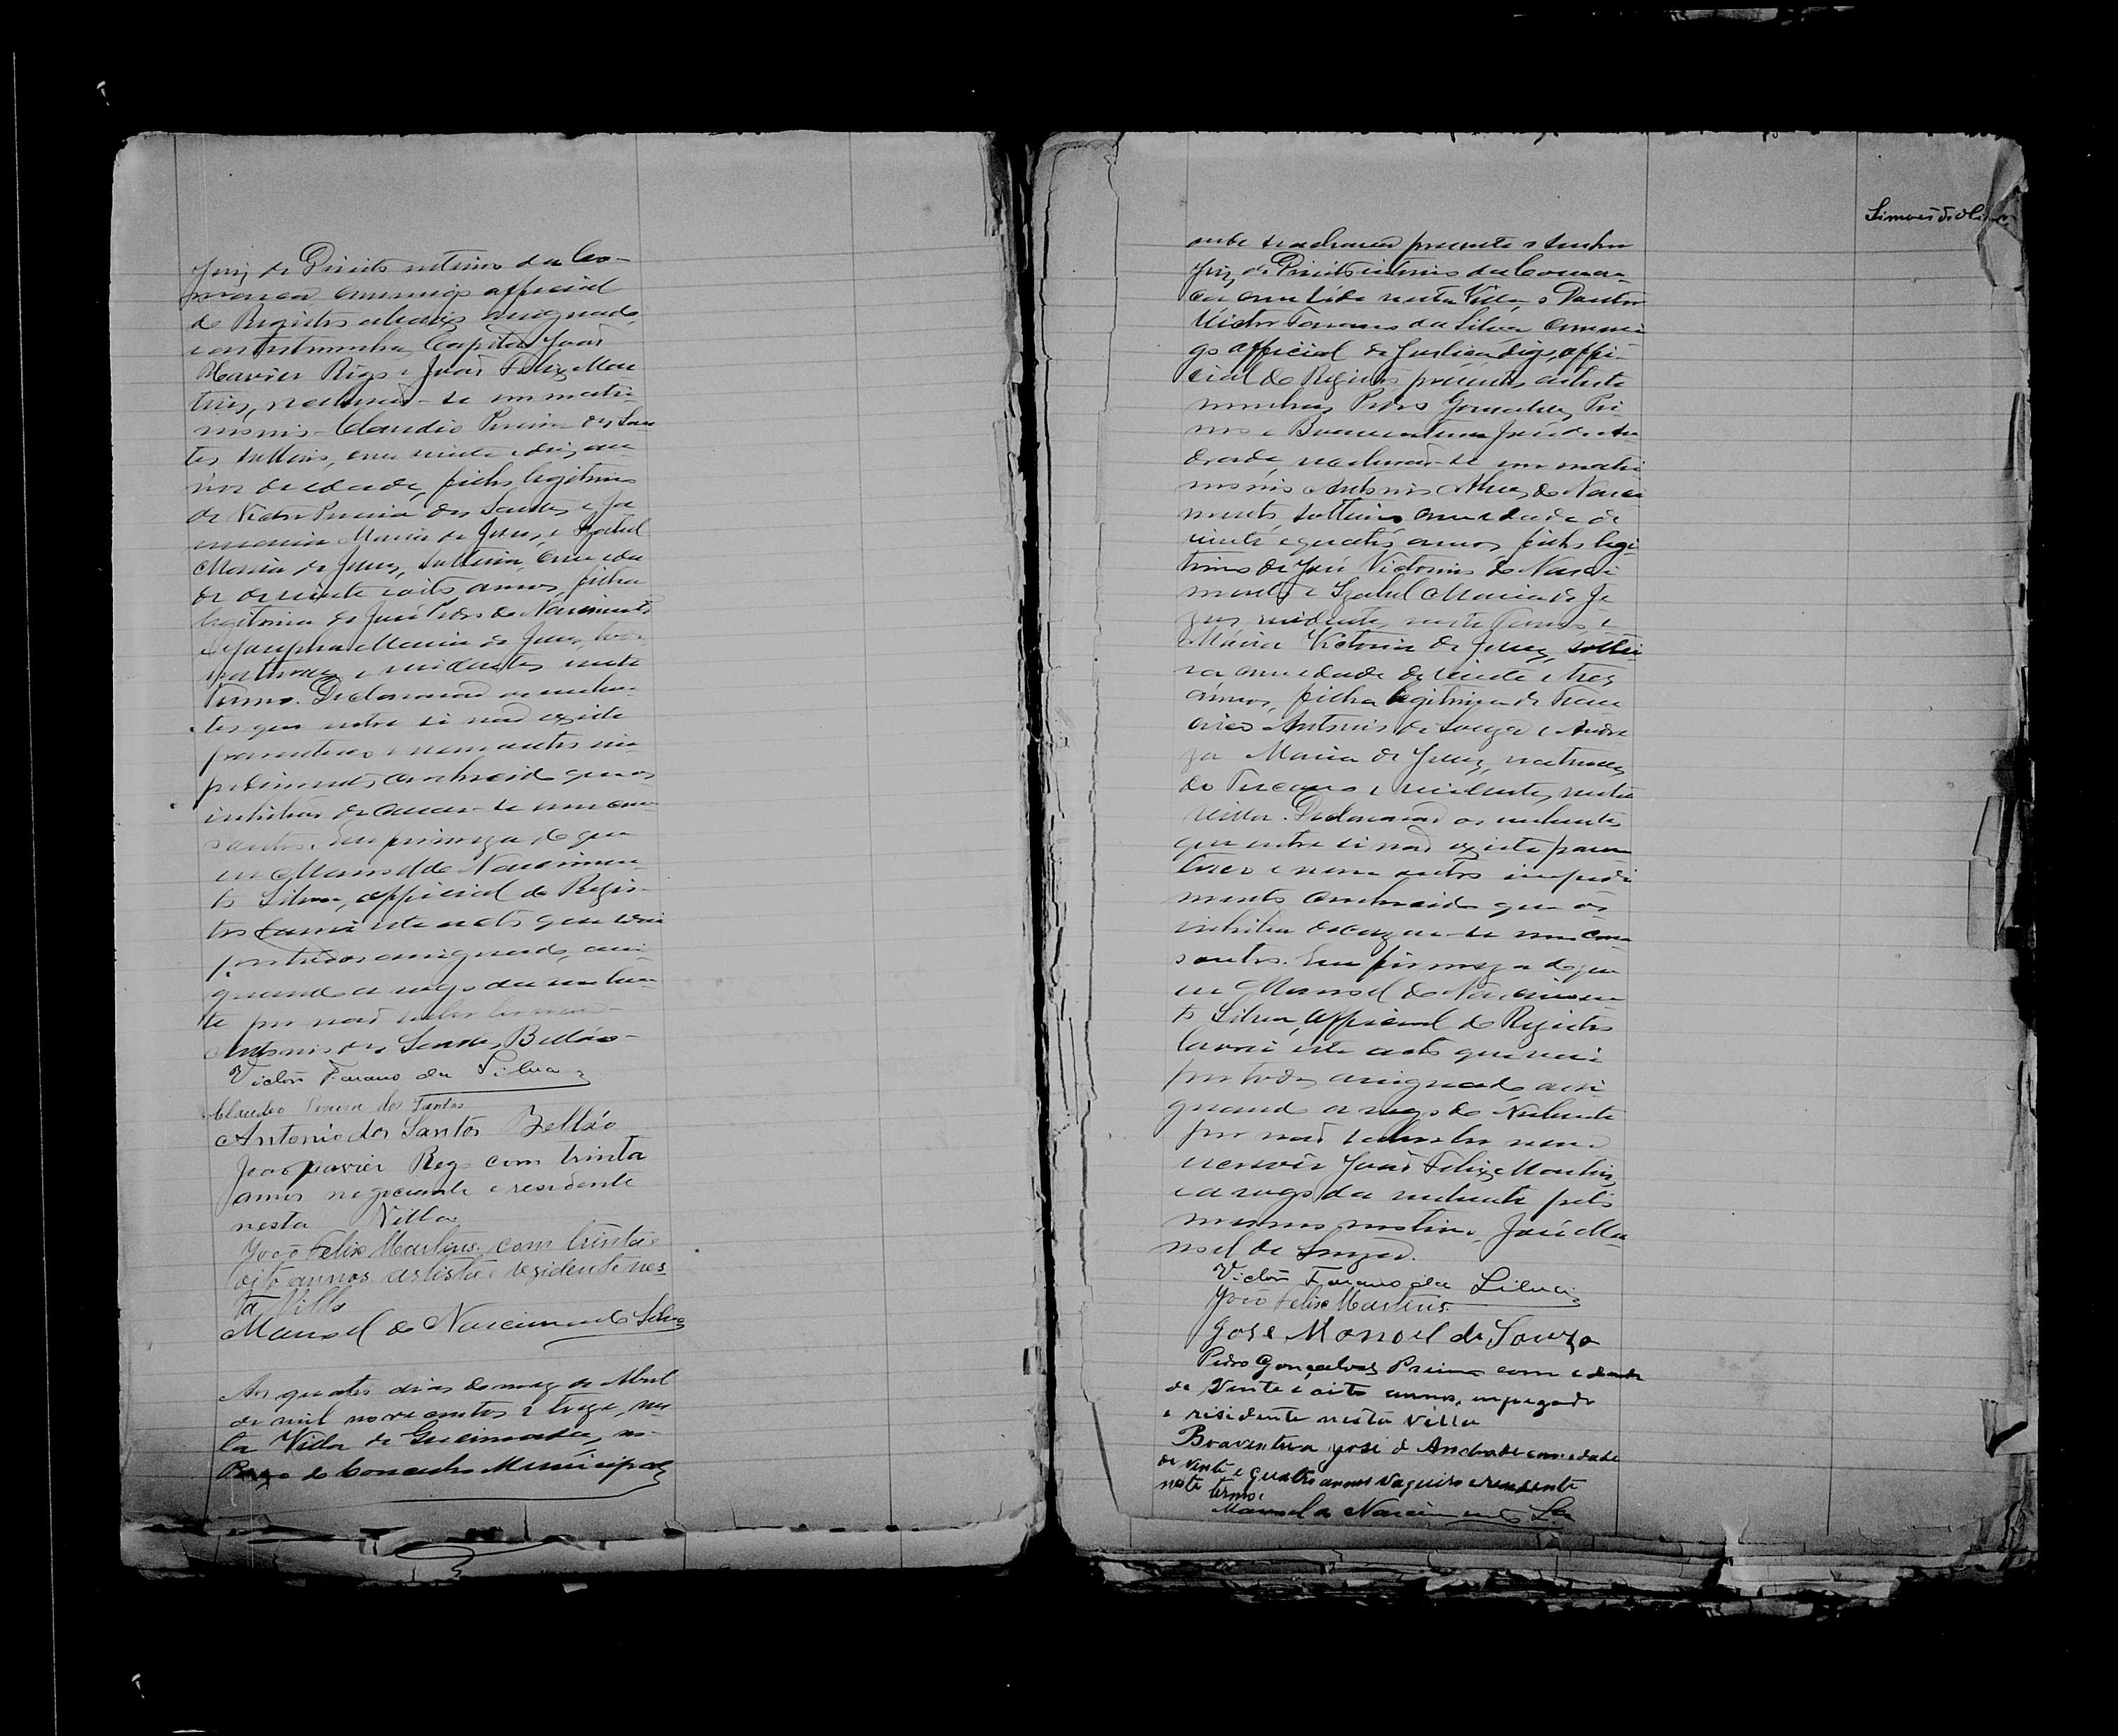 Juiz de Direito interino da Co-
marca commigo official
de Registro abaixo assignado,
e as testemunhas Capitão João
Xavier Rego e João Felix Mar
tins, receberão-se em matri-
monio Claudio Pereira dos San
tos solteiro, com vinte e dois an-
nos de edade, filho legitimo
de Victor Pereira dos Santos e
Maria de Jesus, e Izabel
Maria de Jesus, solteira, com eda
de de vinte e oito annos, filha
legitima de José Pedro do Nascimento
e Josepha Maria de Jesus,
naturaes e residentes neste
Termo. Declararão os nuben-
tes que entre si não existe
parentesco e nem outro im
pedimento conhecido que os
inhiba de casar-se um com
o outro. Em firmeza do que
eu Manoel do Nascimen
to Silva, official do Regis-
tro lavrei este acto que vai
por todos assignado, assi-
gnando a rogo da nuben-
te por não saber ler nem
Antonio dos Santos Bellão-
Victor Farano da Silva
Claudio Pereira dos Santos
Antonio dos Santos Bellão
João Xavier Rego com trinta
annos negociante e residente
nesta Villa
João Felix Martins, com trinta e
oito annos artista e rezidente nes
ta Villa
Manoel do Nascimento Silva
Aos quatro dias do mez de Abril
de mil novecentos e treze, nes
ta Villa de Queimadas, no
Paço do Conselho Municipal
Simões de
onde se achavão presente o Senhor
Juiz de Direito interino da Comar-
ca com séde nesta Villa, o Doutor
Victor Farano da Silva commi
go official de Justiça, digo, offi-
cial do Registro, presentes as teste
munhas Pedro Gonçalves Pri
mo e Boaventura José de An
drade, receberão-se em matri
monio Antonio Alves do Nasci
mento, solteiro com edade de
vinte e quatro annos filho legi
timo de José Victorino do Nasci
mento e Izabel Maria de Je
zus residentes neste Termo, e
Maria Victoria de Jesus, soltei-
ra com edade de vinte e tres
annos, filha legitima de Fran
cisco Antonio de Souza e Andre
za Maria de Jesus, naturaes
do Tucano e residentes nesta
Villa. Declararão os nubentes
que entre si não existe paren
tesco e nem outro impedi
mento conhecido que os
inhiba de cazar-se um com
o outro. Em firmeza do que
eu Manoel do Nascimen
to Silva, official do Registro
lavrei este acto que vai
por todos assignado, assi
gnando a rogo do Nubente
por não saber ler nem
escrever João Felix Martins,
e a rogo da nubente pelo
mesmo motivo, José Ma
noel de Souza.
Victor Farano da Silva
João Felix Martins
José Manoel de Souza
Pedro Gonçalves Primo com edade
de Vinte e oito annos, empregado
e residente nesta Villa
Boaventura José de Andrade com edade
de vinte e quatro annos vaqueiro e residente
neste termo.
Manoel do Nascimento Sa